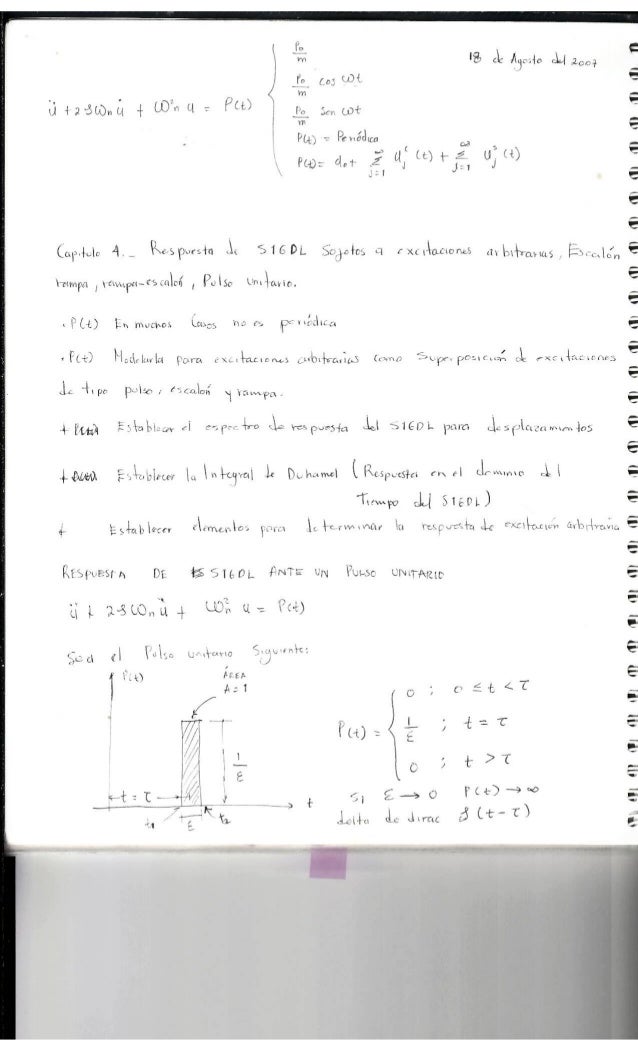 18 de Agosto del 2007
ü + 2ζωn u̇ + ω²n u = P(t) { Po/m
Po/m cos ωt
Po/m Sen ωt
P(t) = Periódica
P(t) = do + Σ(j=1, ∞) Ujᶜ(t) + Σ(j=1, ∞) Ujˢ(t)
Capitulo 4.- Respuesta de S1GDL Sojetos a excitaciones arbitrarias, Escalón
rampa, rampa-escalón, Pulso Unitario.
. P(t) En muchos Casos no es periódica
. P(t) Modelarla para excitaciones arbitrarias como Superposición de excitaciones
de tipo pulso, escalón y rampa.
+ Establecer el espectro de respuesta del S1GDL para desplazamientos
+ Establecer la Integral de Duhamel (Respuesta en el dominio del
Tiempo del S1GDL)
+ Establecer elementos para determinar la respuesta de excitación arbitraria
RESPUESTA DE S1GDL ANTE UN PULSO UNITARIO
ü + 2ζωn u̇ + ω²n u = P(t)
Sea el Pulso unitario Siguiente:
P(t)
ÁREA
A = 1
1/ε
t = τ
t
t1
ε
t2
P(t) = { 0 ; 0 ≤ t < τ
1/ε ; t = τ
0 ; t > τ
Si ε → 0 P(t) → ∞
delta de dirac δ(t-τ)